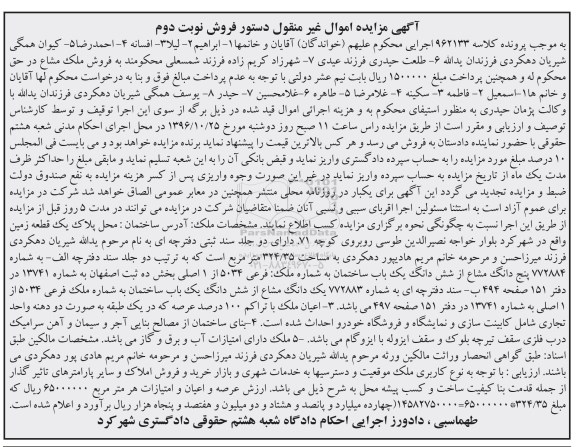 آگهی مزایده اموال غیر منقول دستور فروش نوبت دوم
به موجب پرونده کلاسه ۹۶۲۱۳۳ اجرایی محکوم علیهم (خواندگان) آقایان و خانمها۱- ابراهیم۲- لیلا۳- افسانه ۴- احمدرضا۵- کیوان همگی
شیریان دهکردی فرزندان یدالله ۶- طلعت حیدری فرزند عیدی ۷- شهرزاد کریم زاده فرزند شمسعلی محکومند به فروش ملک مشاع در حق
محکوم له و همچنین پرداخت مبلغ ۱۵۰۰۰۰۰ ریال بابت نیم عشر دولتی با توجه به عدم پرداخت مبالغ فوق و بنا به درخواست محکوم لها آقایان
و خانم ها۱-اسمعیل ۲- فاطمه ۳- سکینه ۴- غلامرضا ۵- طاهره ۶-غلامحسین ۷- حیدر ۸- یوسف همگی شیریان دهکردی فرزندان یدالله با
وکالت پژمان حیدری به منظور استیفای محکوم به و هزینه اجرائی اموال قید شده در ذیل برگه از سوی این اجرا توقیف و توسط کارشناس
توصیف و ارزیابی و مقرر است از طریق مزایده راس ساعت ۱۱ صبح روز دوشنبه مورخ ۱۳۹۶/۱۰/۲۵ در محل اجرای احکام مدنی شعبه هشتم
حقوقی با حضور نماینده دادستان به فروش می رسد و هر کس بالاترین قیمت را پیشنهاد نماید برنده مزایده خواهد بود و می بایست فی المجلس
۱۰ درصد مبلغ مورد مزایده را به حساب سپرده دادگستری واریز نماید و قبض بانکی آن را به این شعبه تسلیم نماید و مابقی مبلغ را حداکثر ظرف
مدت یک ماه از تاریخ مزایده به حساب سپرده واریز نماید در غیر این صورت وجوه واریزی پس از کسر هزینه مزایده به نفع صندوق دولت
ضبط و مزایده تجدید می گردد این آگهی برای یکبار در روزنامه محل منتشر همچنین در معابر عمومی الصاق خواهد شد شرکت در مزایده
برای عموم آزاد است به استثنا مسئولین اجرا اقربای سببی و نسبی آنان ضمنا متقاضیان شرکت در مزایده می توانند در مدت ۵ روز قبل از مزایده
از طریق این اجرا نسبت به چگونگی نحوه برگزاری مزایده کسب اطلاع نمایند. مشخصات ملک: آدرس ساختمان : محل پلاک یک قطعه زمین
واقع در شهرکرد بلوار خواجه نصیرالدین طوسی روبروی کوچه ۷۱. دارای دو جلد سند ثبتی دفترچه ای به نام مرحوم یدالله شیریان دهکردی
فرزند میرزاحسن و مرحومه خانم مریم هادیپور دهکردی به مساحت ۳۲۴/۳۵ متر مربع است که به ترتیب دو جلد سند دفترچه الف- به شماره
۷۷۲۸۸۴ پنج دانگ مشاع از شش دانگ یک باب ساختمان به شماره ملک: فرعی ۵۰۳۴ از ۱ اصلی بخش ده ثبت اصفهان به شماره ۱۳۷۴۱ در
دفتر ۱۵۱ صفحه ۴۹۴ ب- سند دفترچه ای به شماره ۷۷۲۸۸۳ یک دانگ مشاع از شش دانگ یک باب ساختمان به شماره ملک فرعی ۵۰۳۴ از
۱ اصلی به شماره ۱۳۷۴۱ در دفتر ۱۵۱ صفحه ۴۹۷ می باشد. ۳- اعیان ملک با تراکم ۱۰۰ درصد عرصه که در یک طبقه به صورت دو دهنه واحد
تجاری شامل کابینت سازی و نمایشگاه و فروشگاه خودرو احداث شده است. ۴-بنای ساختمان از مصالح بنایی آجر و سیمان و آهن سرامیک
درب فلزی سقف تیرچه بلوک و سقف ایزوله با ایزوگام می باشد. -۵ ملک دارای امتیازات آب و برق و گاز می باشد. مشخصات مالکین طبق
اسناد: طبق گواهی انحصار وراثت مالکین ورثه مرحوم یدالله شیریان دهکردی فرزند میرزاحسن و مرحومه خانم مریم هادی پور دهکردی می
باشند. ارزیابی : با توجه به نوع کاربری ملک موقعیت و دسترسیها به خدمات شهری و بازار خرید و فروش املاک و سایر پارامترهای تاثیر گذار
از جمله قدمت بنا کیفیت ساخت و کسب پیشه محل به شرح ذیل می باشد. ارزش عرصه و اعیان و امتیازات هر متر مربع ۶۵۰۰۰۰۰۰ ریال که
مبلغ ۳۲۴/۳۵*۶۵۰۰۰۰۰۰=۱۴۵۸۲۷۵۰۰۰۰(چهارده میلیارد و پانصد و هشتاد و دو میلیون و هفتصد و پنجاه هزار ریال برآورد و اعلام شده است.
طهماسبی ، دادورز اجرایی احکام دادگاه شعبه هشتم حقوقی دادگستری شهرکرد